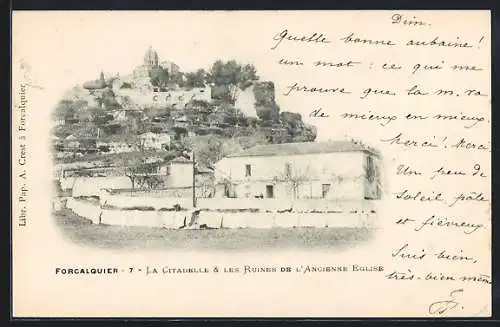 Dim.
Quelle bonne aubaine!
un mot : ce qui me
prouve que la m. va
de mieux en mieux.
Merci! Merci
Un peu de
Soleil, pâle
et fiévreux.
suis bien,
très-bien même
Libr. Pap. A. Crest à Forcalquier
FORCALQUIER - 7 - LA CITADELLE & LES RUINES DE L'ANCIENNE EGLISE